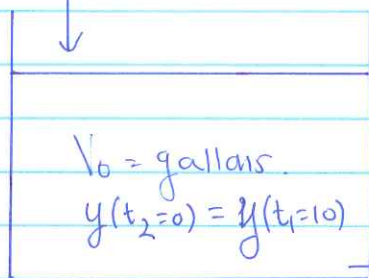 V₀ = gallons.
y(t₂=0) = y(t₁=10)